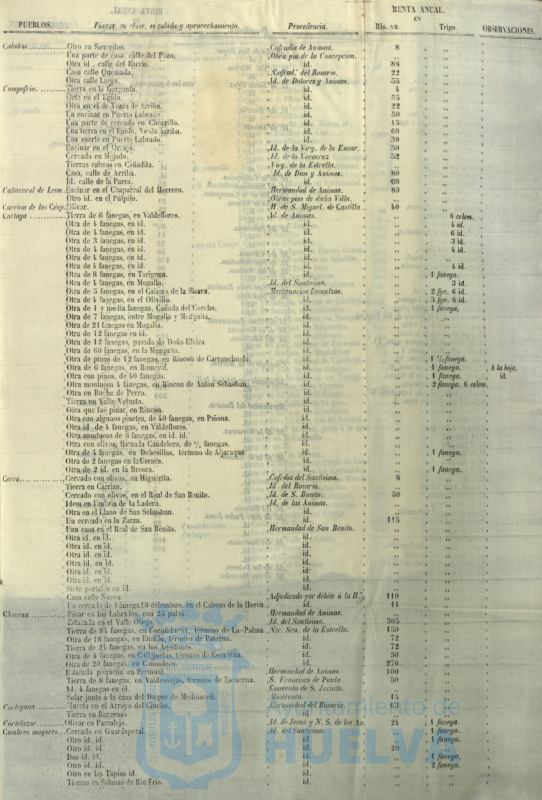 RENTA ANUAL.
EN
PUEBLOS. Fincas, su clase, su cabida y aprovechamiento. Procedencia. Rls. vn. Trigo. OBSERVACIONES.
Calañas Otro en Sanpolos. Cofradia de Animas. 8
Una parte de casa, calle del Pozo. Obra pia de la Concepcion.
Otra id., calle del Barrio. id. 88
Casa calle Quemada. Cofrad.ª del Rosario. 22
Otra calle Larga. Id. de Dolores y Animas. 55
Campofrio. Tierra en la Garganta. id. 4
Otra en el Egido. id. 55
Otra en el de Venta de Arriba. id. 22
Un encinar en Puerto Labrado. id. 50
Una parte de cercado en Chorrilla. id. 15
Una tierra en el Egido, Venta Arriba. id. 60
Una suerte en Puerto Labrado. id. 30
Encinar en el Urcajo. Id. de la Virg. de la Encar. 50
Cercado en Mojado. Id. de la Veracruz 52
Tierras calmas en Cañadita. Virg. de la Estrella.
Casa, calle de Arriba. Id. de Dios y Animas. 80
Id. calle de la Parra. id. 60
Cañaveral de Leon. Encinar en el Chaparral del Herrero. Hermandad de Animas. 80
Otro id. en el Pulpito. Obras pias de dicha Villa.
Carrion de los Césp. Olivar. H. de S. Miguel, de Castilla. 40
Cartaya Tierra de 6 fanegas, en Valdeflores. Id. de Animas. 6 celem.
Otra de 4 fanegas, en id. id. 4 id.
Otra de 4 fanegas, en id. id. 6 id.
Otra de 3 fanegas, en id. id. 3 id.
Otra de 4 fanegas, en id. id. 4 id.
Otra de 4 fanegas, en id. id.
Otra de 4 fanegas, en id. id. 4 id.
Otra de 8 fanegas, en Tariquna. id. 1 fanega.
Otra de 4 fanegas, en Mogalla. Id. del Santisimo. 3 id.
Otra de 5 fanegas, en el Cabezo de la Sierra. Mercenarios Descalzos. 2 fgs. 6 id.
Otra de 4 fanegas, en el Olivillo. id. 3 fgs. 6 id.
Otra de 1 y media fanegas, Cañada del Corcho. id. 1 fanega.
Otra de 7 fanegas, entre Mogalla y Mezquita. id.
Otra de 24 fanegas en Mogalla. id.
Otra de 12 fanegas en id. id.
Otra de 12 fanegas, pasada de Doña Elvira id.
Otra de 60 fanegas, en la Mezquita. id.
Otra de pinos de 12 fanegas, en Rincon de Carrancbuelo. id. 1 1/2 fanega.
Otra de 6 fanegas, en Romeral. id. 1 fanega. A la baja.
Otra con pinos, de 40 fanegas. id. 1 fanega. id.
Otra montuosa 4 fanegas, en Rincon de Anton Sebastian. id. 2 fanegs. 6 celem.
Otra en Buche de Perro. id.
Tierra en Valle Vetusto. id.
Otra que fué pinar, en Rincon. id.
Otra con algunos pinetes, de 40 fanegas, en Piñona. id.
Otra id. de 4 fanegas, en Valdeflores. id.
Otra montuosa de 5 fanegas, en id. id. id.
Otra con olivos, llamada Candelero, de fanegas. id.
Otra de 4 fanegas, en Dehesillas, término de Aljaraque id. 1 fanega.
Otra de 2 fanegas en la Urraca. id.
Otra de 2 id. en la Bresca. id. 1 fanega.
Cerro Cercado con olivos, en Higuerita. Cofrdia del Santisimo. 8
Tierra en Carrizo. Id. del Rosario.
Cercado con olivos, en el Real de San Benito. Id. de S. Benito. 50
Idem en Umbria de la Ladera. Id. de las Animas.
Otra en el Llano de San Sebastian. id.
Un cercado en la Zarza. id. 115
Una casa en el Real de San Benito. Hermandad de San Benito.
Otra id. en id. id.
Otra id. en id. id.
Otra id. en id. id.
Otra id. en id. id.
Otra id. en id. id.
Otra id. en id. id.
Siete portales en id. id.
Casa calle Nueva. Adjudicado por débito á la H.ª 110
Un cercado de 1 fanega 10 celemines, en el Cabezo de la Horca. id. 44
Chucena. Pinar en los Labrados, con 25 palos. Hermandad de Animas.
Estacada en el Valle Obispo. Id. del Santisimo. 305
Tierra de 8½ fanegas, en Fuentidueña, término de La-Palma. Ntr. Sra. de la Estrella. 150
Otra de 18 fanegas, en Enrillo, término de Paterna. id. 72
Tierra de 25 fanegas, en los Aguijones. id. 72
Otra de 4 fanegas, en Callejuelas, término de Escacena. id. 30
Otra de 20 fanegas, en Comadero. id. 270
Estacada pequeña en Perianal. Hermandad de Animas. 100
Tierra de 8 fanegas, en Valdeovejas, término de Escacena. S. Francisco de Paula 50
Id. 4 fanegas en él. Convento de S. Jacinto.
Solar junto á la casa del Duque de Medinaceli. Monteruca. 15
Cortegana Huerta en el Arroyo del Cincho. Hermandad del Rosario. 63
Tierra en Bargenas. id.
Cortelazor Olivar en Parralejo. Id. de Jesus y N. S. de los An. 24 1 fanega.
Cumbres mayores Cercado en Guardaperal. Id. del Santisimo. 1 fanega.
Otro id. id. id. 1 fanega.
Otro id. id. id. 20
Dos id. id. id. 1 fanega.
Otro id. id. id. 2 fanega.
Otro en las Tapias id. id.
Tierras en Solanas de Rio Frio. id.
Ayuntamiento de
HUELVA